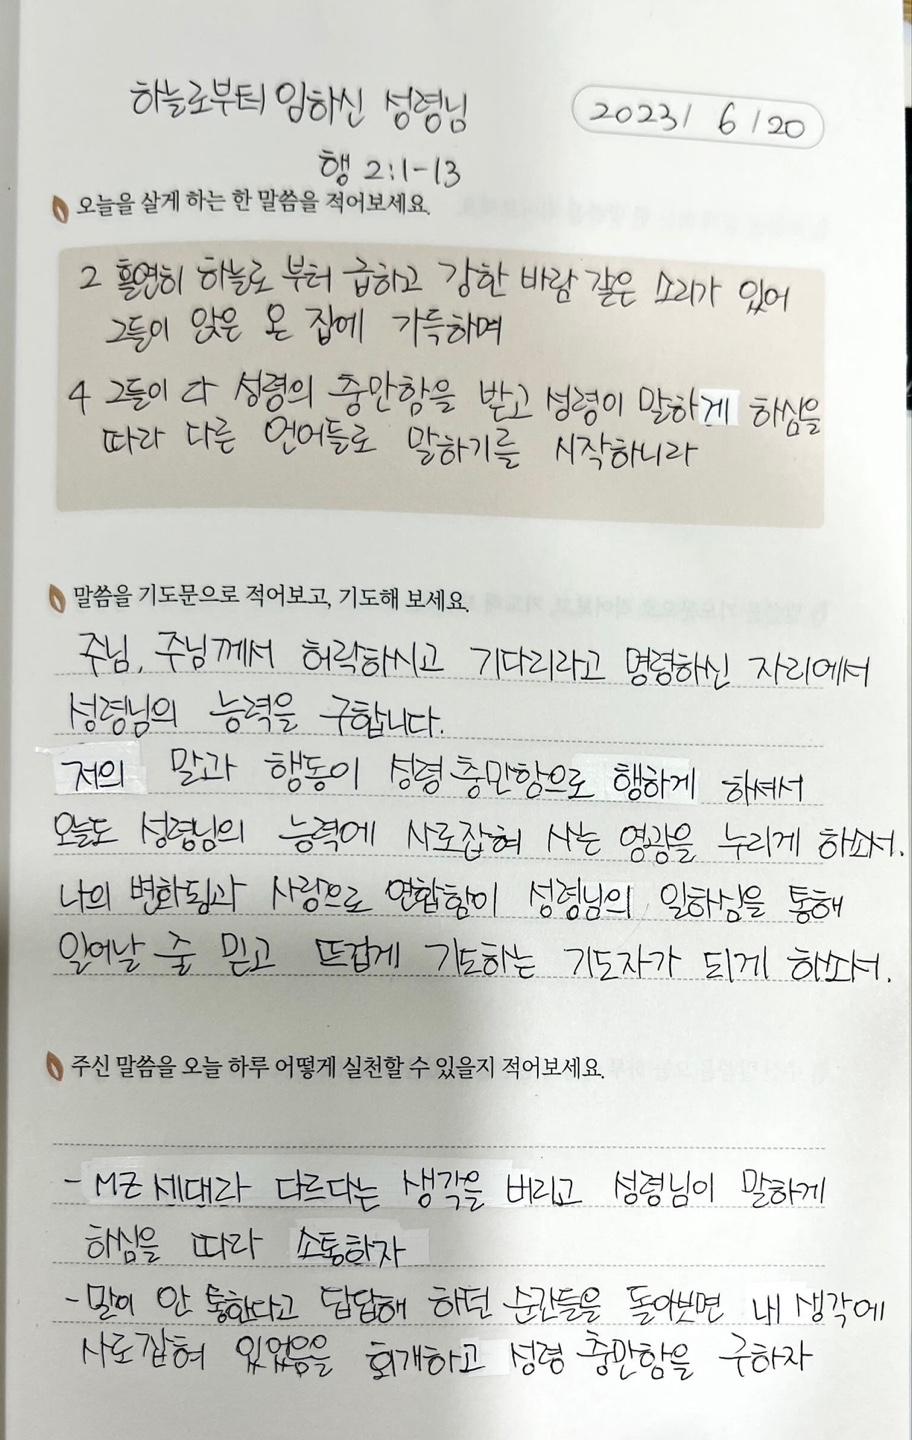 하늘로부터 임하신 성령님
2023/ 6/20
행 2:1-13
오늘을 살게 하는 한 말씀을 적어보세요.
2 홀연히 하늘로 부터 급하고 강한 바람 같은 소리가 있어
그들이 앉은 온 집에 가득하며
4 그들이 다 성령의 충만함을 받고 성령이 말하게 하심을
따라 다른 언어들로 말하기를 시작하니라
말씀을 기도문으로 적어보고, 기도해 보세요.
주님, 주님께서 허락하시고 기다리라고 명령하신 자리에서
성령님의 능력을 구합니다.
저의 말과 행동이 성령 충만함으로 행하게 하셔서
오늘도 성령님의 능력에 사로잡혀 사는 영광을 누리게 하소서.
나의 변화됨과 사랑으로 연합함이 성령님의 일하심을 통해
일어날 줄 믿고 뜨겁게 기도하는 기도자가 되게 하소서.
주신 말씀을 오늘 하루 어떻게 실천할 수 있을지 적어보세요.
- MZ 세대라 다르다는 생각을 버리고 성령님이 말하게
하심을 따라 소통하자
- 말이 안 통한다고 답답해 하던 순간들을 돌아보면 내 생각에
사로잡혀 있었음을 회개하고 성령 충만함을 구하자